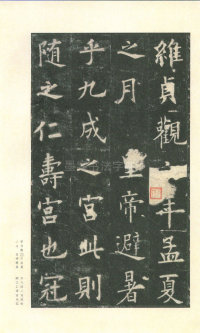 維貞觀年孟夏
之月帝避暑
乎九成之宮此則
随之仁壽宮也冠